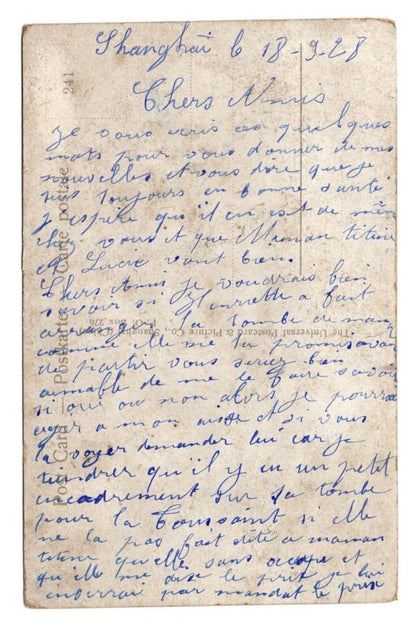 Shanghaï le 18-9-28
Chers Amis
Je vous ecris ces quelques
mots pour vous donner de mes
nouvelles et vous dire que je
suis toujours en bonne santé
j'espère qu'il en est de même
chez vous et que Maman titine
et Lucie vont bien.
Chers Ami je voudrais bien
savoir si Henriette a fait
arranger la tombe de man
comme elle me la promis avan
de partir vous seriez bien
aimable de me le faire savoir
si oui ou non alors je pourrai
a mon aise et si vous
la voyer demander lui car je
tiendrer qu'il y eu un petit
encadrement sur sa tombe
pour la Toussaint si elle
ne la pas fait dite a maman
titine quelle sans occupe et
qu'elle me dise le prix je lui
enverrai par mandat le prix
Post Card — Postkarte — Carte postale
241
The Universal Postcard & Picture Co., Shanghai